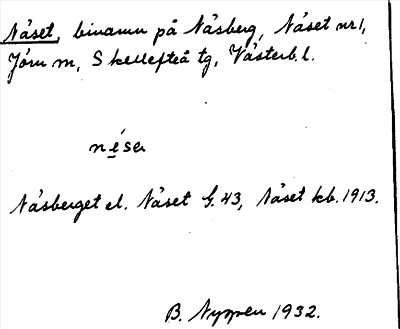 Näset, binamn på Näsberg, Näset nr 1,
Jörn sn, Skellefteå tg, Västerb. l.
néser
Näsberget el. Näset G. 43, Näset kb. 1913.
B. Nyppen 1932.